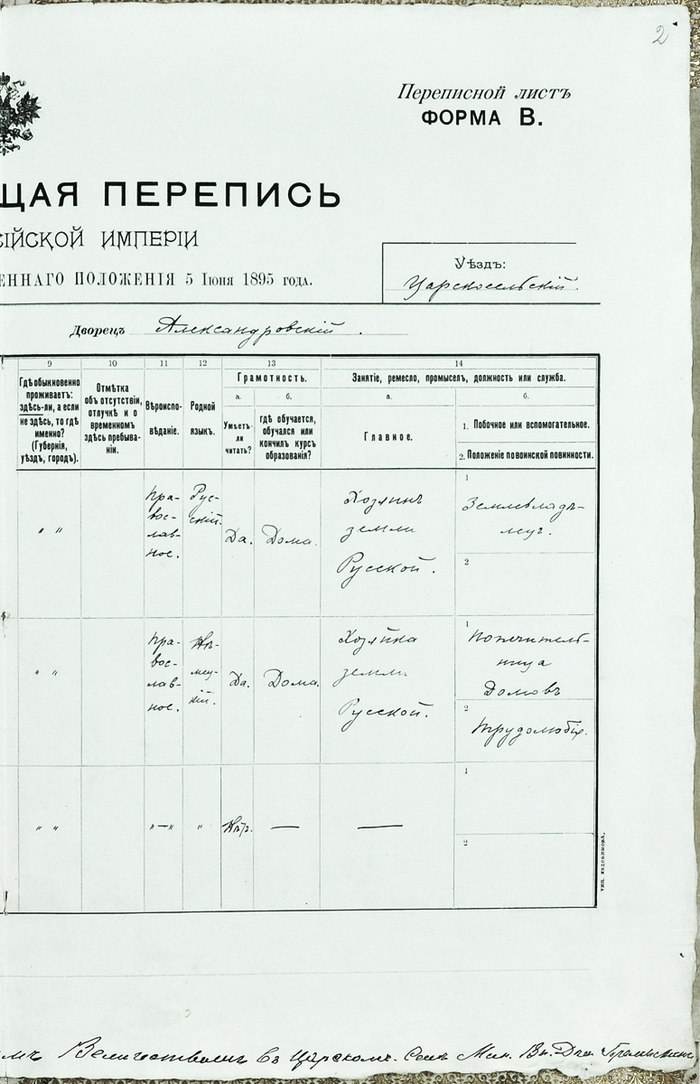 2
Переписной листъ
ФОРМА В.
ЩАЯ ПЕРЕПИСЬ
СІЙСКОЙ ИМПЕРІИ
ЕННАГО ПОЛОЖЕНІЯ 5 Іюня 1895 года.
Уѣздъ:
Царскосельскій.
Дворецъ Александровскій.
9 10 11 12 13 14
Гдѣ обыкновенно
проживаетъ:
здѣсь-ли, а если
не здѣсь, то гдѣ
именно?
(Губернія,
уѣздъ, городъ).
Отмѣтка
объ отсутствіи,
отлучкѣ и о
временномъ
здѣсь пребыва-
ніи.
Вѣроиспо-
вѣданіе.
Родной
языкъ.
Грамотность.
а. б.
Умѣетъ-
ли
читать?
гдѣ обучается,
обучался или
кончилъ курсъ
образованія?
Занятіе, ремесло, промыселъ, должность или служба.
а. б.
Главное.
1. Побочное или вспомогательное.
2. Положеніе по воинской повинности.
" "
Пра-
вос-
лав-
ное.
Рус-
скій.
Да.
Дома.
Хозяинъ
земли
Русской.
1
Землевладѣ-
лецъ.
2
" "
Пра-
вос-
лав-
ное.
Нѣ-
мец-
кій.
Да.
Дома.
Хозяйка
земли
Русской.
1
Попечитель-
ница
Домовъ
2
Трудолюбія.
" "
"—"
"
Нѣтъ.
—
—
1
2
ТИП. ЕВДОКИМОВА.
Величествомъ въ Царскомъ Селѣ Мин. Вн. Дѣл.